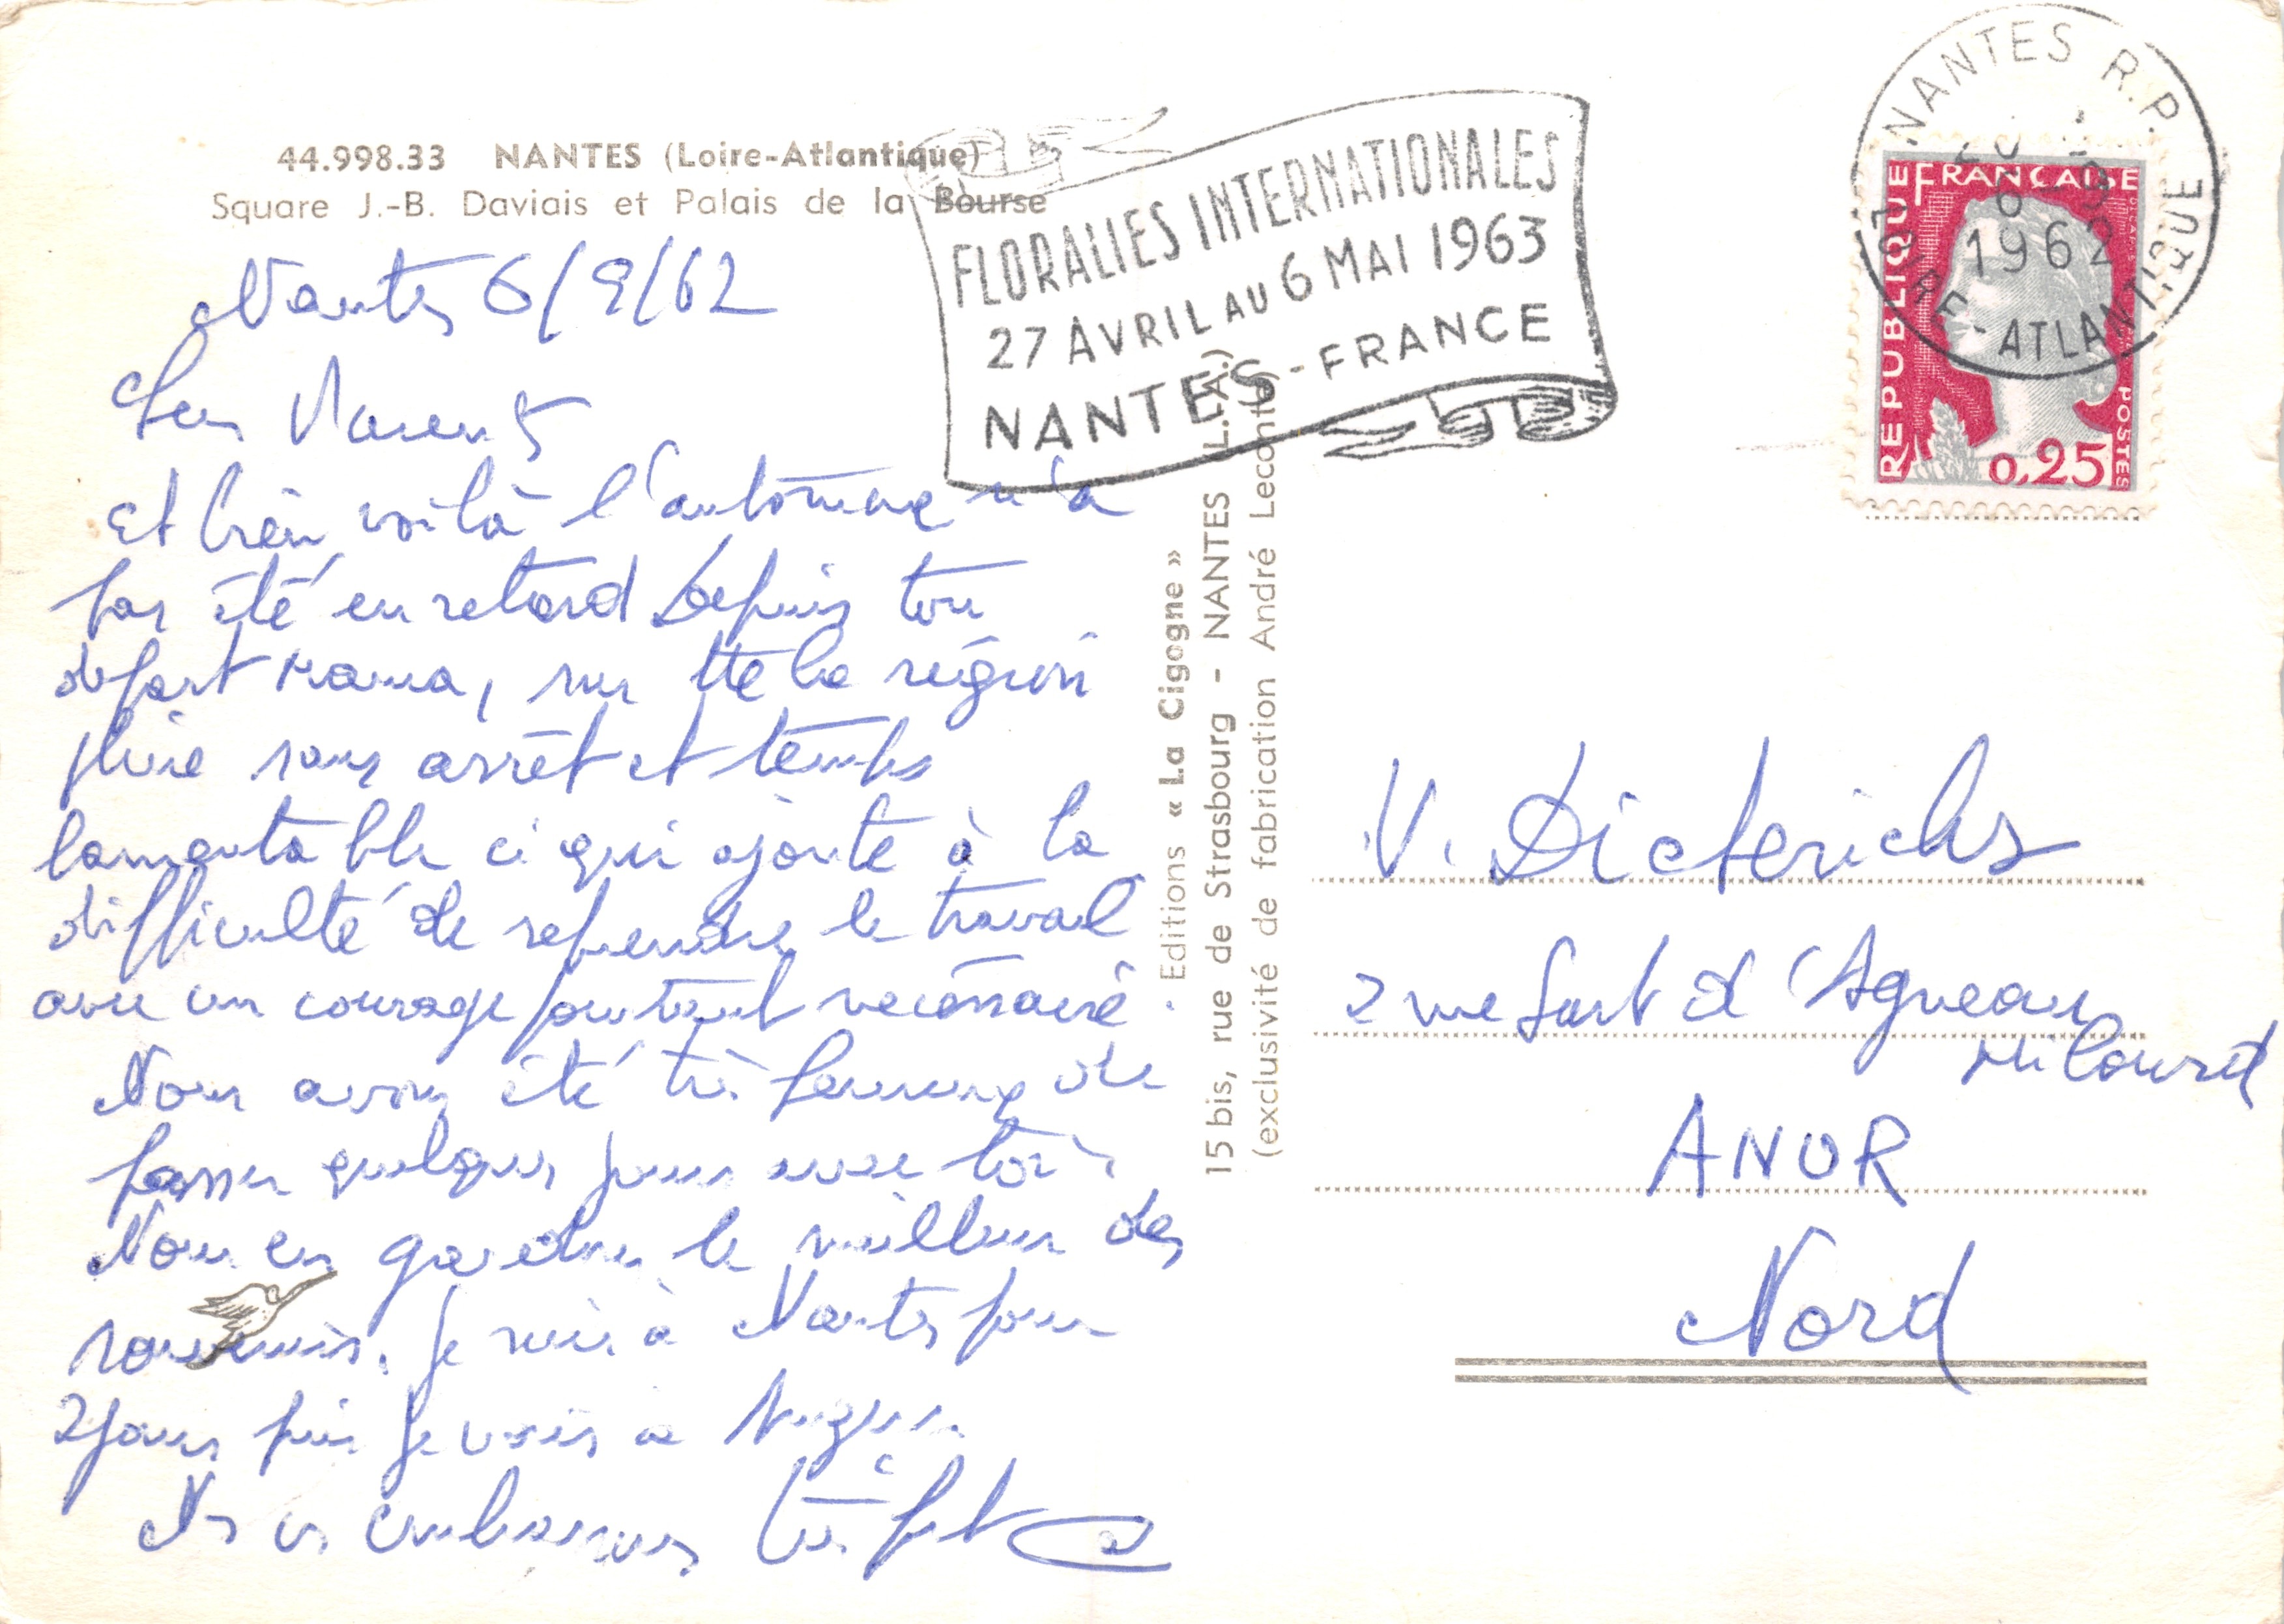 44.998.33 NANTES (Loire-Atlantique)
Square J.-B. Daviais et Palais de la Bourse
Nantes 6/9/62
Chers Parents
Et bien voilà l'automne n'a
pas été en retard Depuis ton
départ Mama, sur tte la région
pluie sans arrêt et temps
lamentable ce qui ajoute à la
difficulté de reprendre le travail
avec un courage pourtant necessaire.
Nous avons été très heureux de
passer quelques jours avec toi.
Nous en gardons le meilleur des
souvenirs. Je suis à Nantes pour
2 jours puis je vais a
Ns vs embrassons très fort
FLORALIES INTERNATIONALES
27 AVRIL AU 6 MAI 1963
NANTES-FRANCE
Editions « La Cigogne »
15 bis, rue de Strasbourg - NANTES (L.-A.)
(exclusivité de fabrication André Leconte)
NANTES R.P.
1962
LOIRE-ATLANTIQUE
REPUBLIQUE FRANÇAISE
POSTES
0,25
V. Dieterichs
2 rue Sart d'Agneau
Milourd
ANOR
Nord